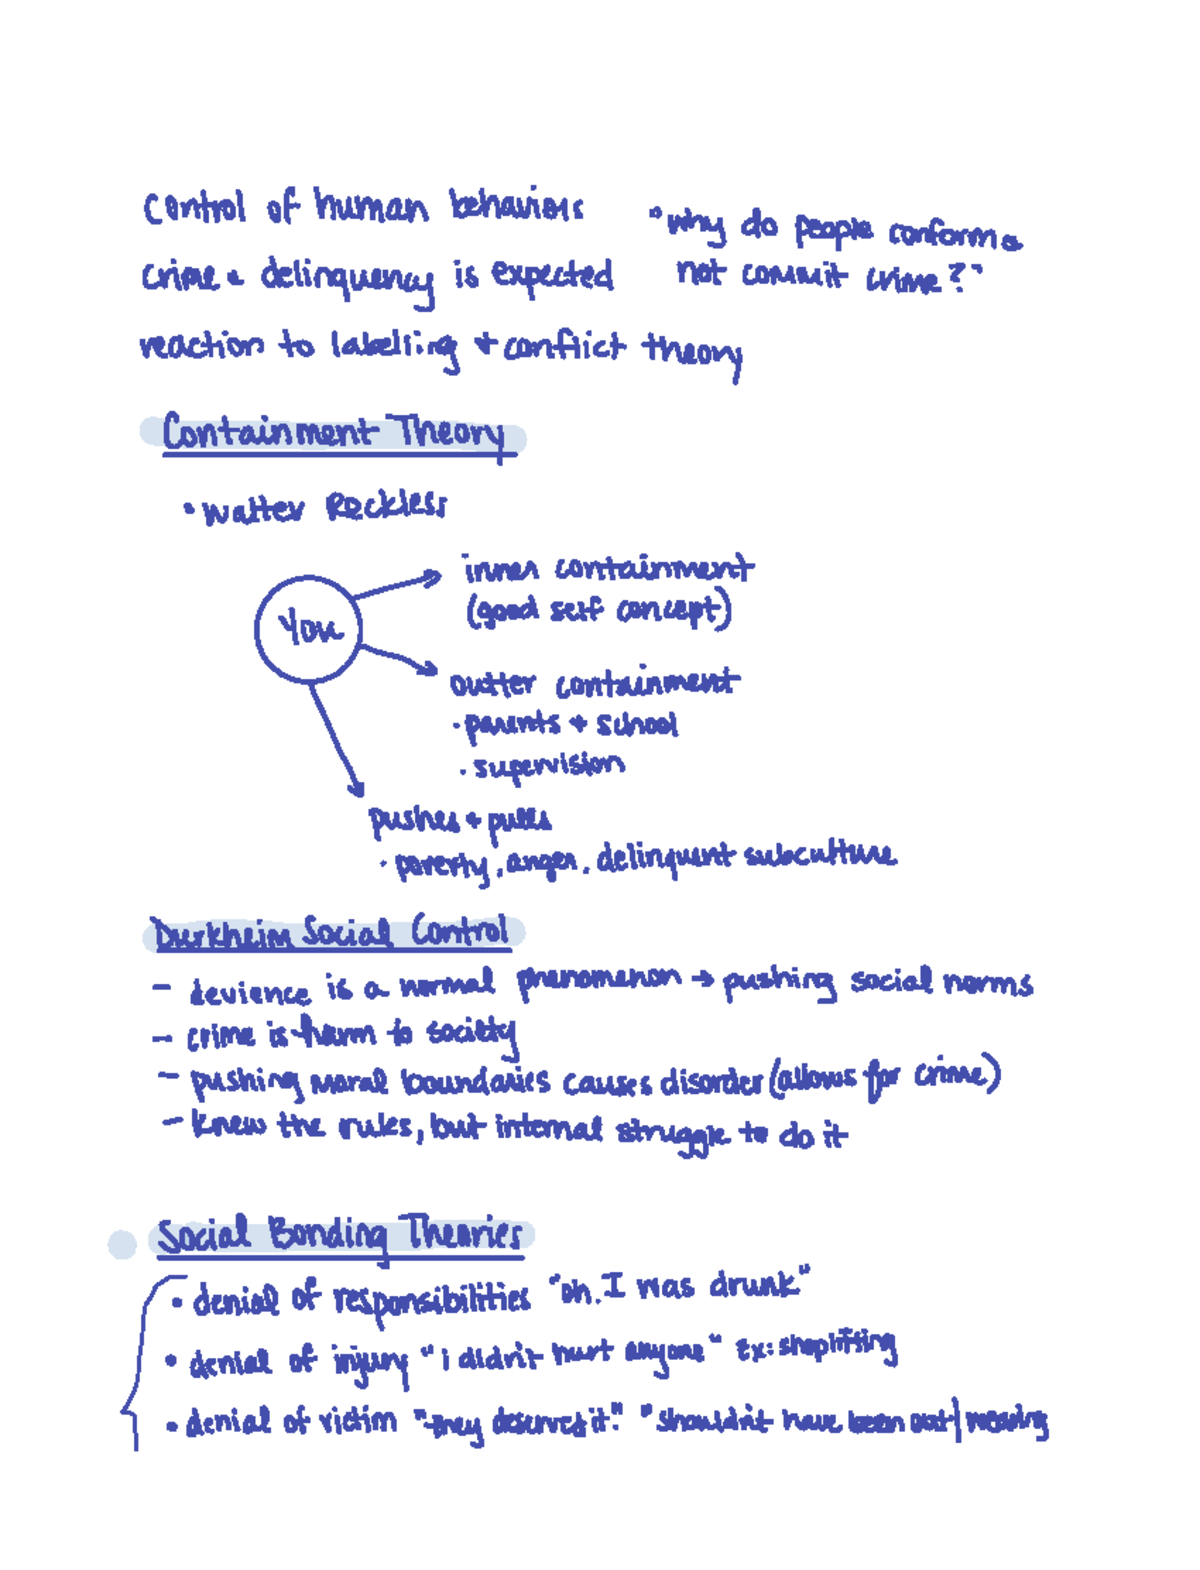 control of human behaviors
"why do people conform &
crime & delinquency is expected
not commit crime?"
reaction to labelling + conflict theory
Containment Theory
• Walter Reckless
You
inner containment
(good self concept)
outter containment
· parents + school
· supervision
pushes + pulls
· poverty, anger, delinquent subculture
Durkheim Social Control
– devience is a normal phenomenon → pushing social norms
– crime is harm to society
– pushing moral boundaries causes disorder (allows for crime)
– knew the rules, but internal struggle to do it
Social Bonding Theories
• denial of responsibilities "oh, I was drunk"
• denial of injury "i didn't hurt anyone" Ex: shoplifting
• denial of victim "they deserves it" "shouldn't have been out/wearing